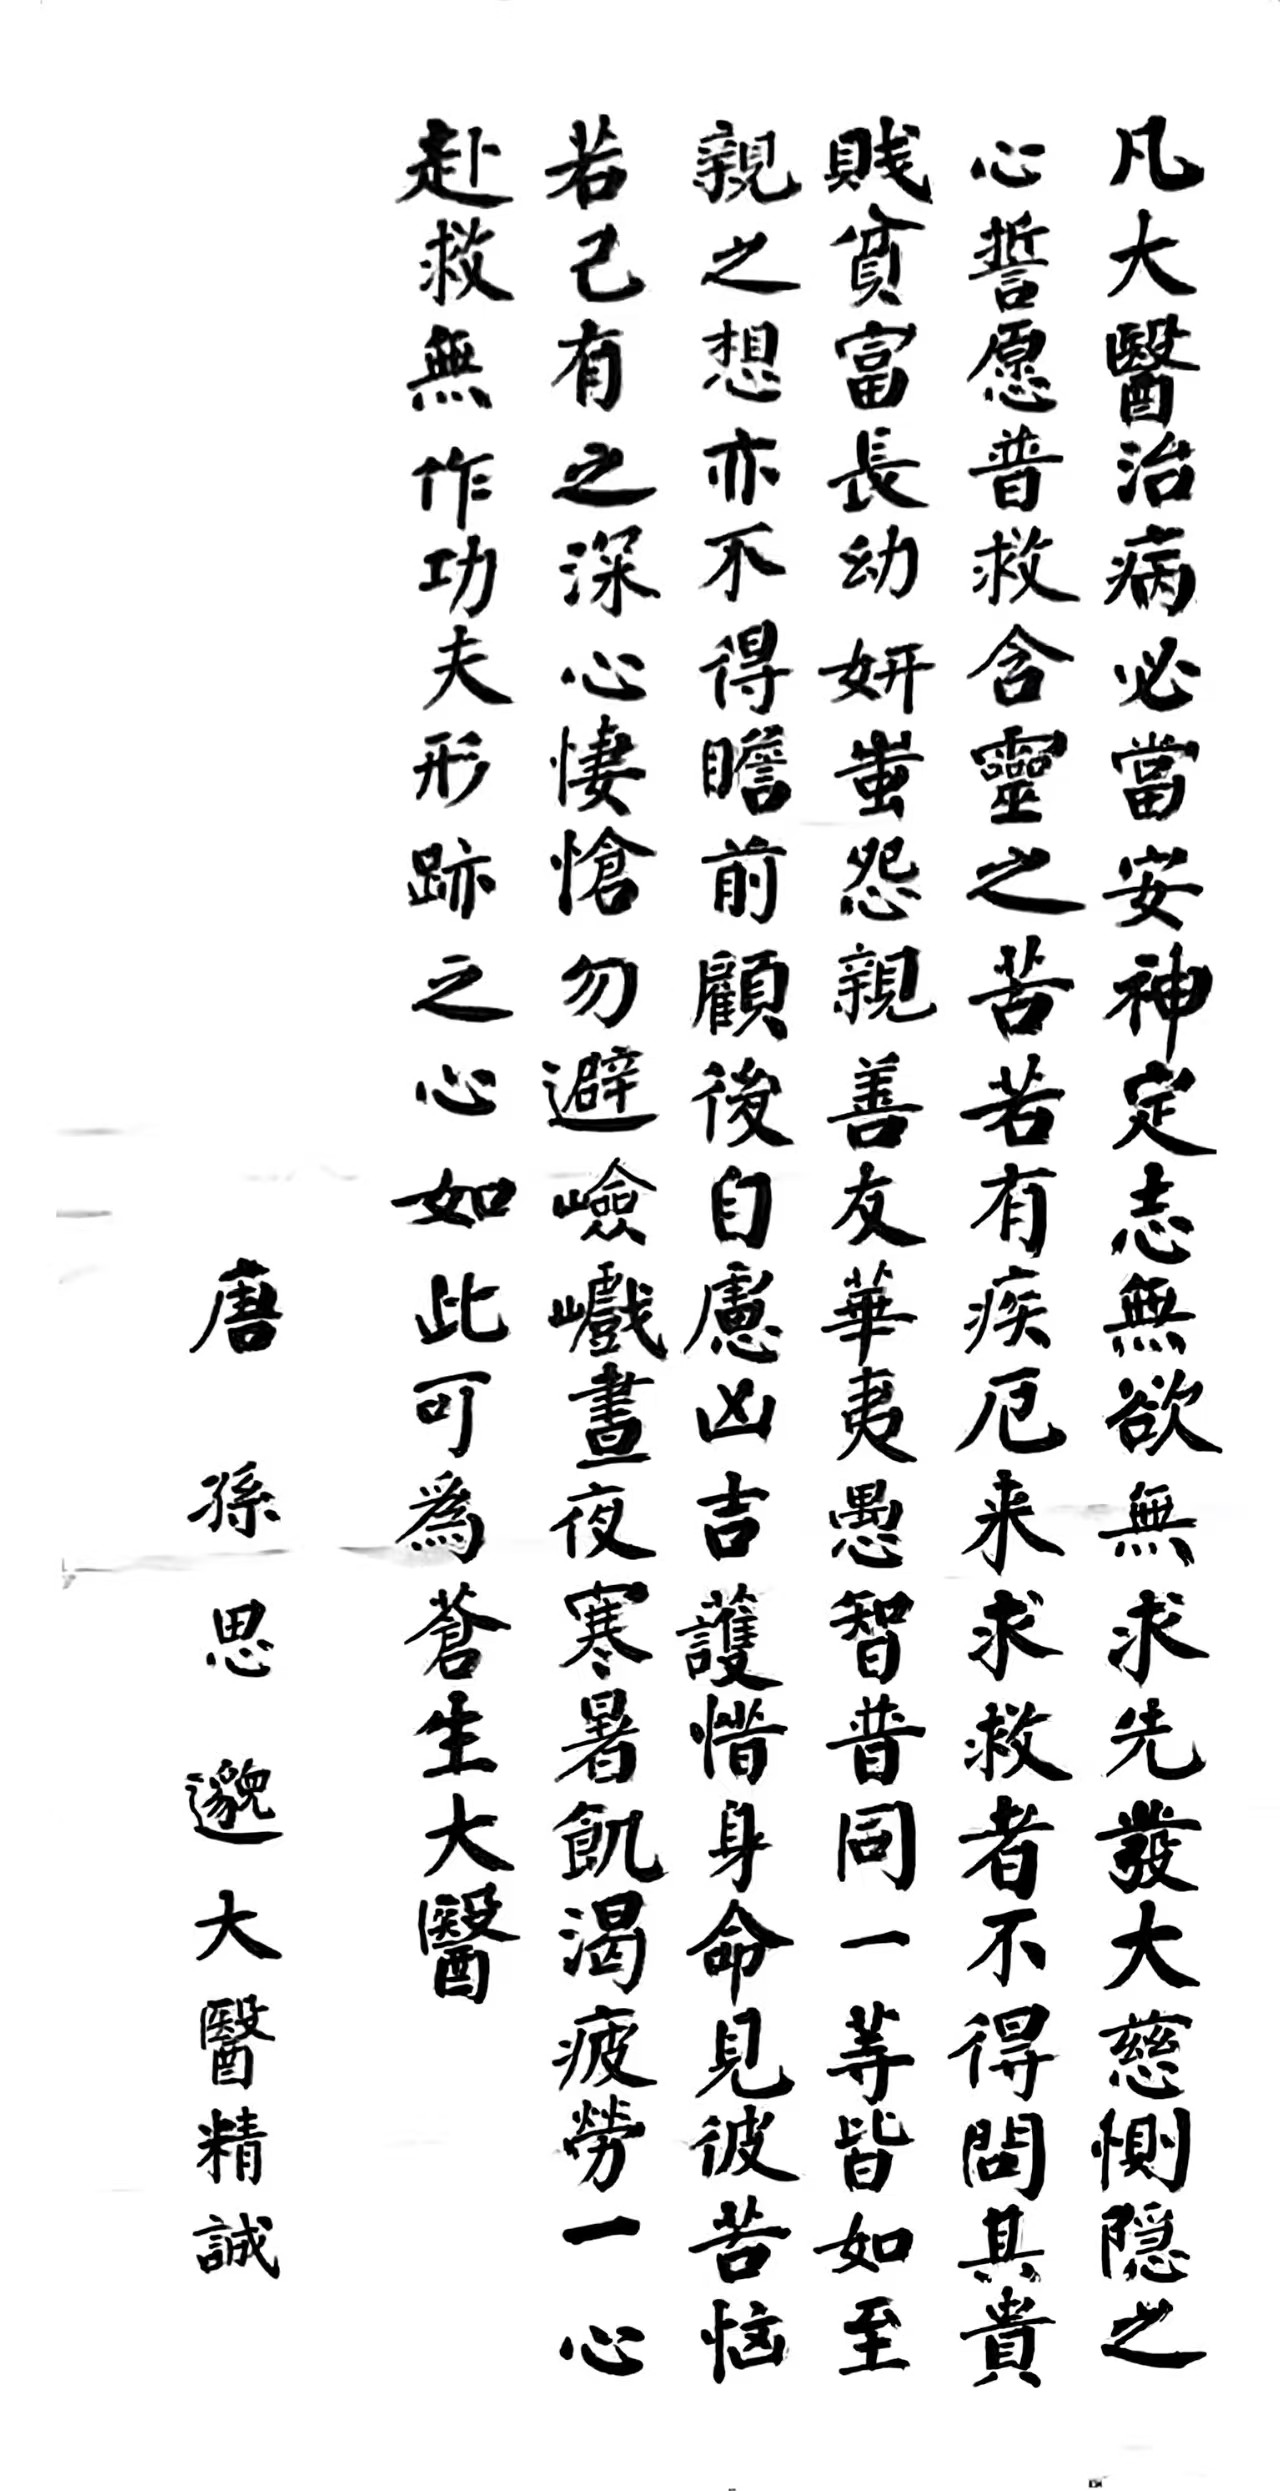 凡大醫治病必當安神定志無欲無求先發大慈惻隐之
心誓愿普救含靈之苦若有疾厄来求救者不得問其貴
賤貧富長幼妍蚩怨親善友華夷愚智普同一等皆如至
親之想亦不得瞻前顧後自慮凶吉護惜身命見彼苦恼
若己有之深心悽愴勿避嶮巇晝夜寒暑飢渴疲勞一心
赴救無作功夫形跡之心如此可為蒼生大醫
唐孫思邈大醫精誠